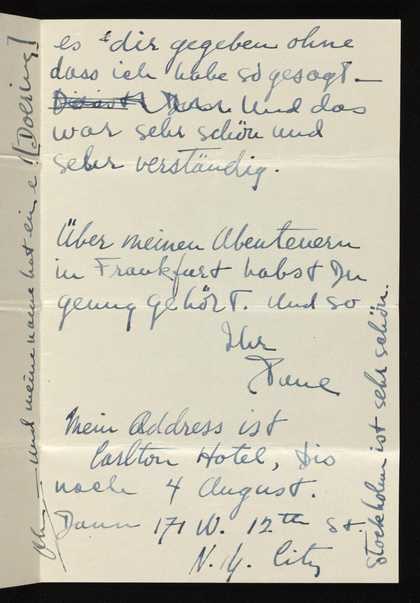 es dir gegeben ohne
dass ich habe so gesagt —
Und das
war sehr schön und
sehr verständig.
Über meinen Abenteuern
in Frankfurt habst Du
genug gehört. Und so
Ihr
Mein Address ist
Carlton Hotel, bis
nach 4 August.
Dann 171 W. 12th St.
N. Y. City
Stockholm ist sehr schön.
— und meine name hat ein e! (Doering)